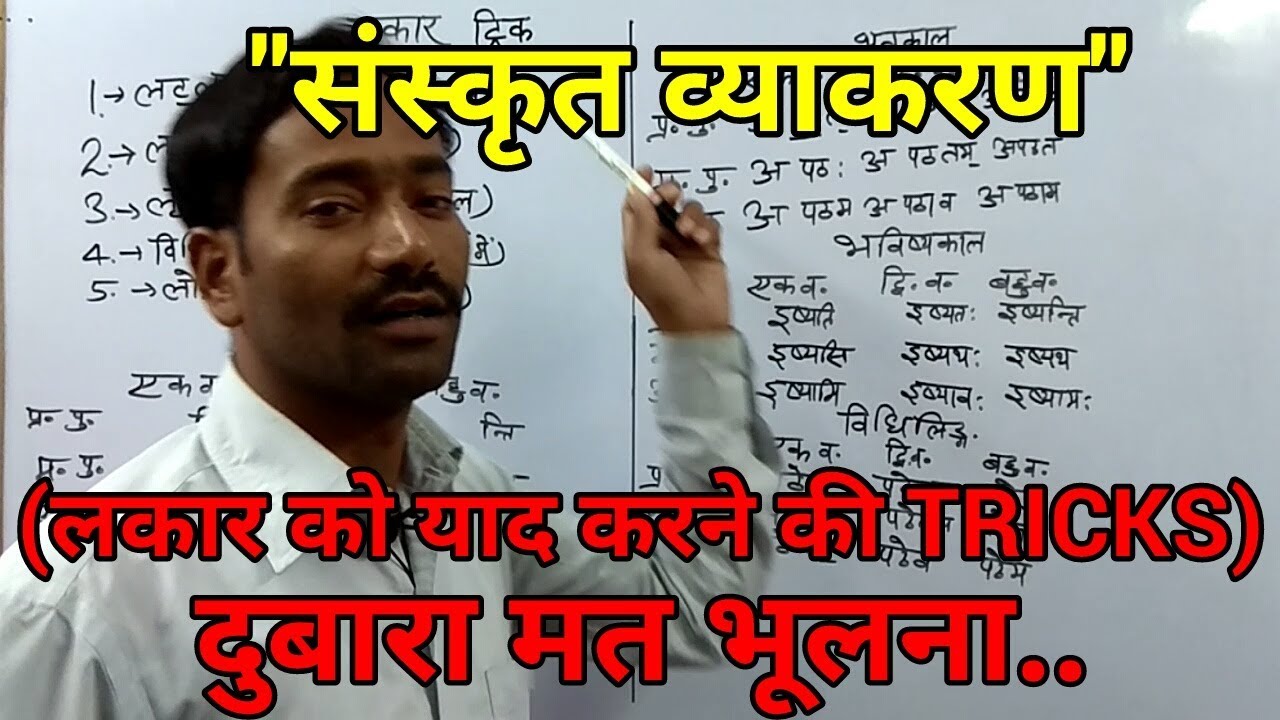 "संस्कृत व्याकरण"
(लकार को याद करने की TRICKS)
दुबारा मत भूलना..
कार ट्रिक
1.→ लट्
2.→
3.→
4.→ वि
5.→ लो
एक व
प्र. पु.
न्ति
प्र. पु.
भूतकाल
प्र. पु.
पु. अ पठः अ पठतम् अपठत
अ पठम अ पठाव अ पठाम
भविष्यकाल
एकव. द्वि.व. बहुव.
इष्यति इष्यतः इष्यन्ति
इष्यसि इष्यथः इष्यथ
इष्यामि इष्यावः इष्यामः
विधिलिङ्ग.
एक व. द्वि.व. बहुव.
पठेव पठेम